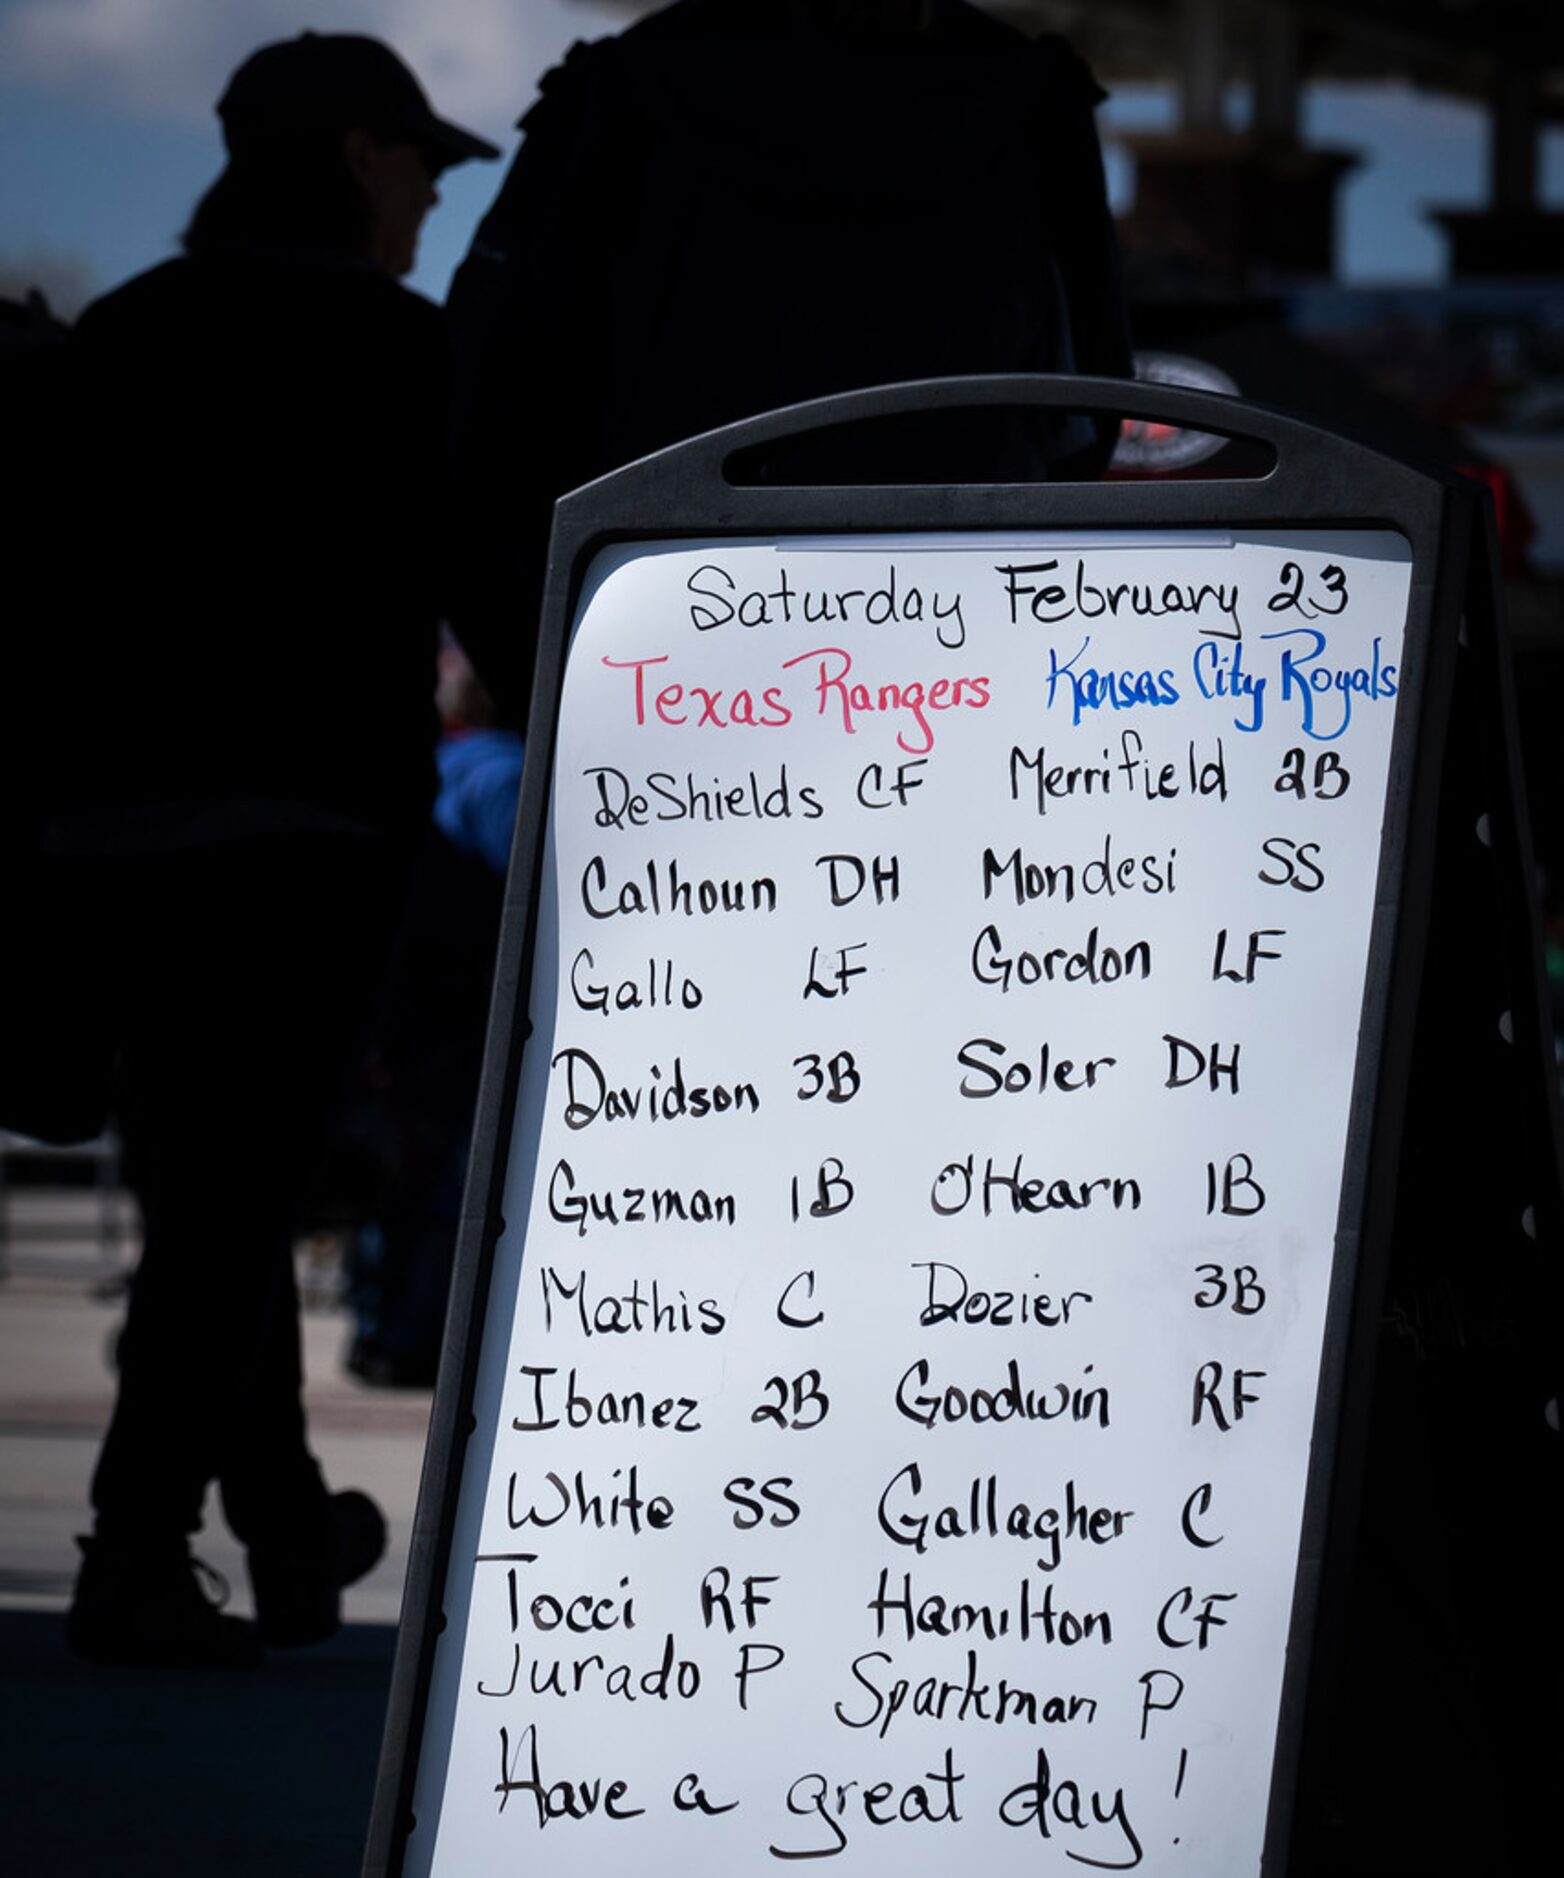 Saturday February 23
Texas Rangers Kansas City Royals
DeShields CF Merrifield 2B
Calhoun DH Mondesi SS
Gallo LF Gordon LF
Davidson 3B Soler DH
Guzman 1B O'Hearn 1B
Mathis C Dozier 3B
Ibanez 2B Goodwin RF
White SS Gallagher C
Tocci RF Hamilton CF
Jurado P Sparkman P
Have a great day!